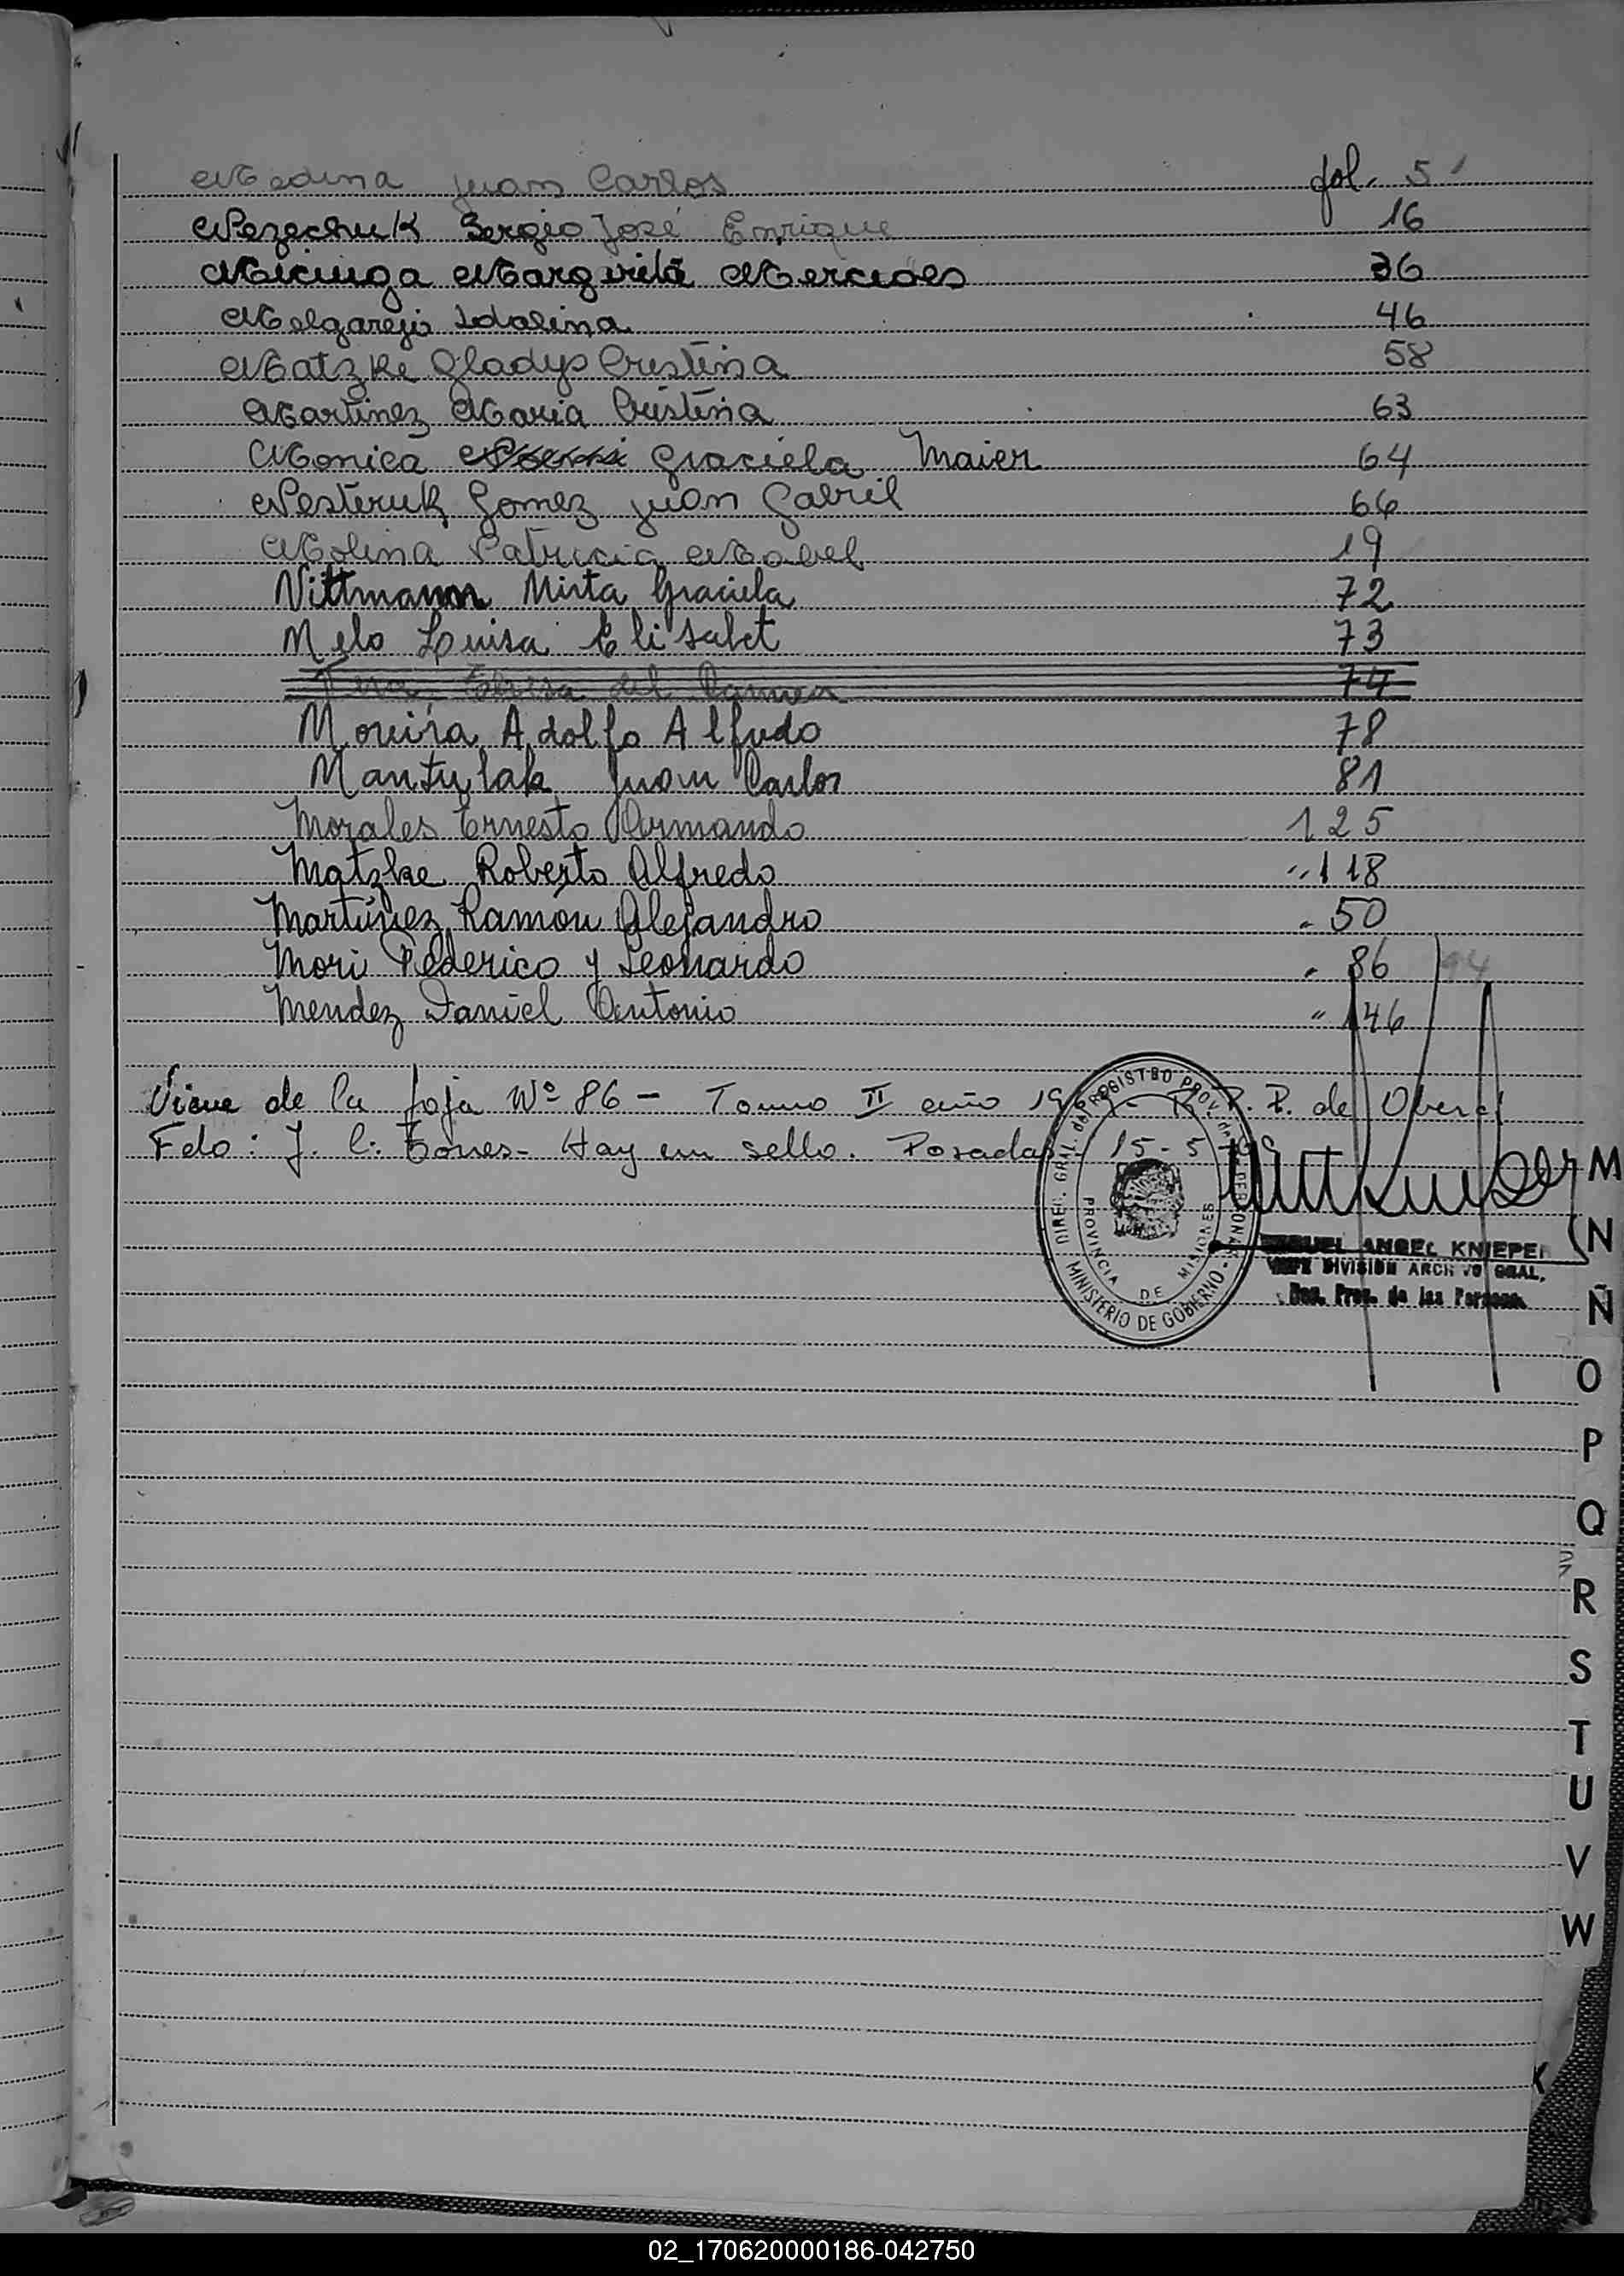 Medina Juan Carlos fol. 5
Nezechuk Sergio José Enrique 16
Miciuga Margarita Mercedes 36
Melgarejo Idalina 46
Matzke Gladys Cristina 58
Martinez Maria Cristina 63
Monica Graciela Maier 64
Nesteruk Gomez Juan Gabril 66
Molina Patricia Mabel 19
Vittmann Mirta Graciela 72
Melo Luisa Elisabet 73
Teresa del Carmen 74
Moreira Adolfo Alfredo 78
Mantulak Juan Carlos 81
Morales Ernesto Armando 125
Matzke Roberto Alfredo " 118
Martinez Ramón Alejandro " 50
Mori Federico y Leonardo " 86 94
Mendez Daniel Antonio " 146
Viene de la foja Nº 86 - Tomo II año R.P.P. de Oberá
Fdo: J. C. Torres - Hay un sello. Posadas 15-5-
DIREC. GRAL. del REGISTRO PROV. de las PERSONAS - MINISTERIO DE GOBIERNO
PROVINCIA DE MISIONES
MIGUEL ANGEL KNIEPER
JEFE DIVISION ARCHIVO GRAL.
Reg. Prov. de las Personas
M
N
Ñ
O
P
Q
R
S
T
U
V
W
02_170620000186-042750